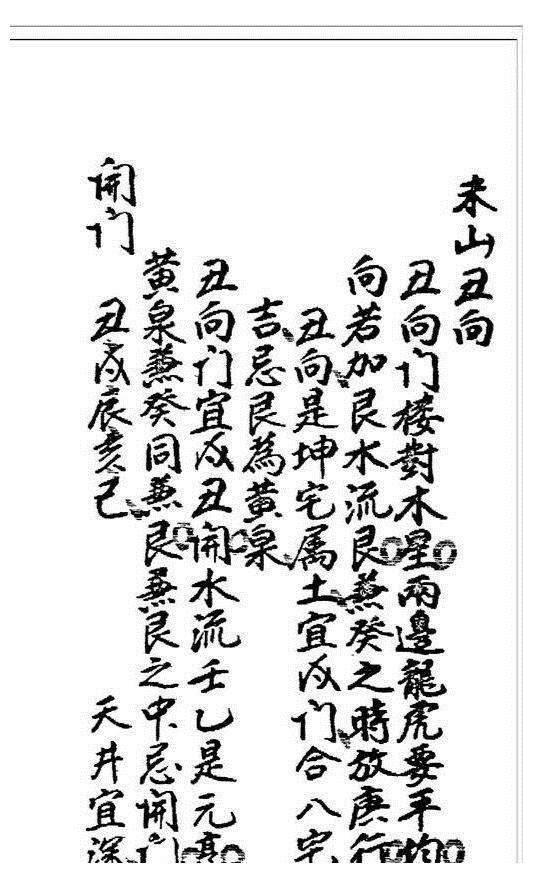 未山丑向
丑向门楼對木星兩邊龍虎要平均
向若加艮水流艮兼癸之時放庚行
丑向是坤宅属土宜戌门合八宅
吉忌艮為黄泉
丑向门宜戌丑開水流壬乙是元亨
黄泉兼癸同兼艮兼艮之中忌開门
開门 丑戌辰亥己 天井宜深